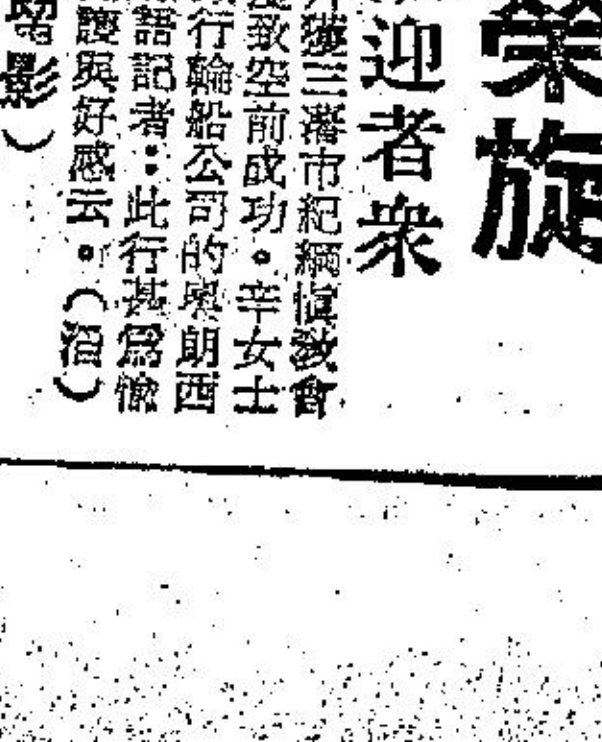 榮旋
迎者衆
獲三藩市紀綱慎敎會
致空前成功。辛女士
行輪船公司的奧朗西
語記者：此行甚爲愉
護與好感云。（滔）
影）